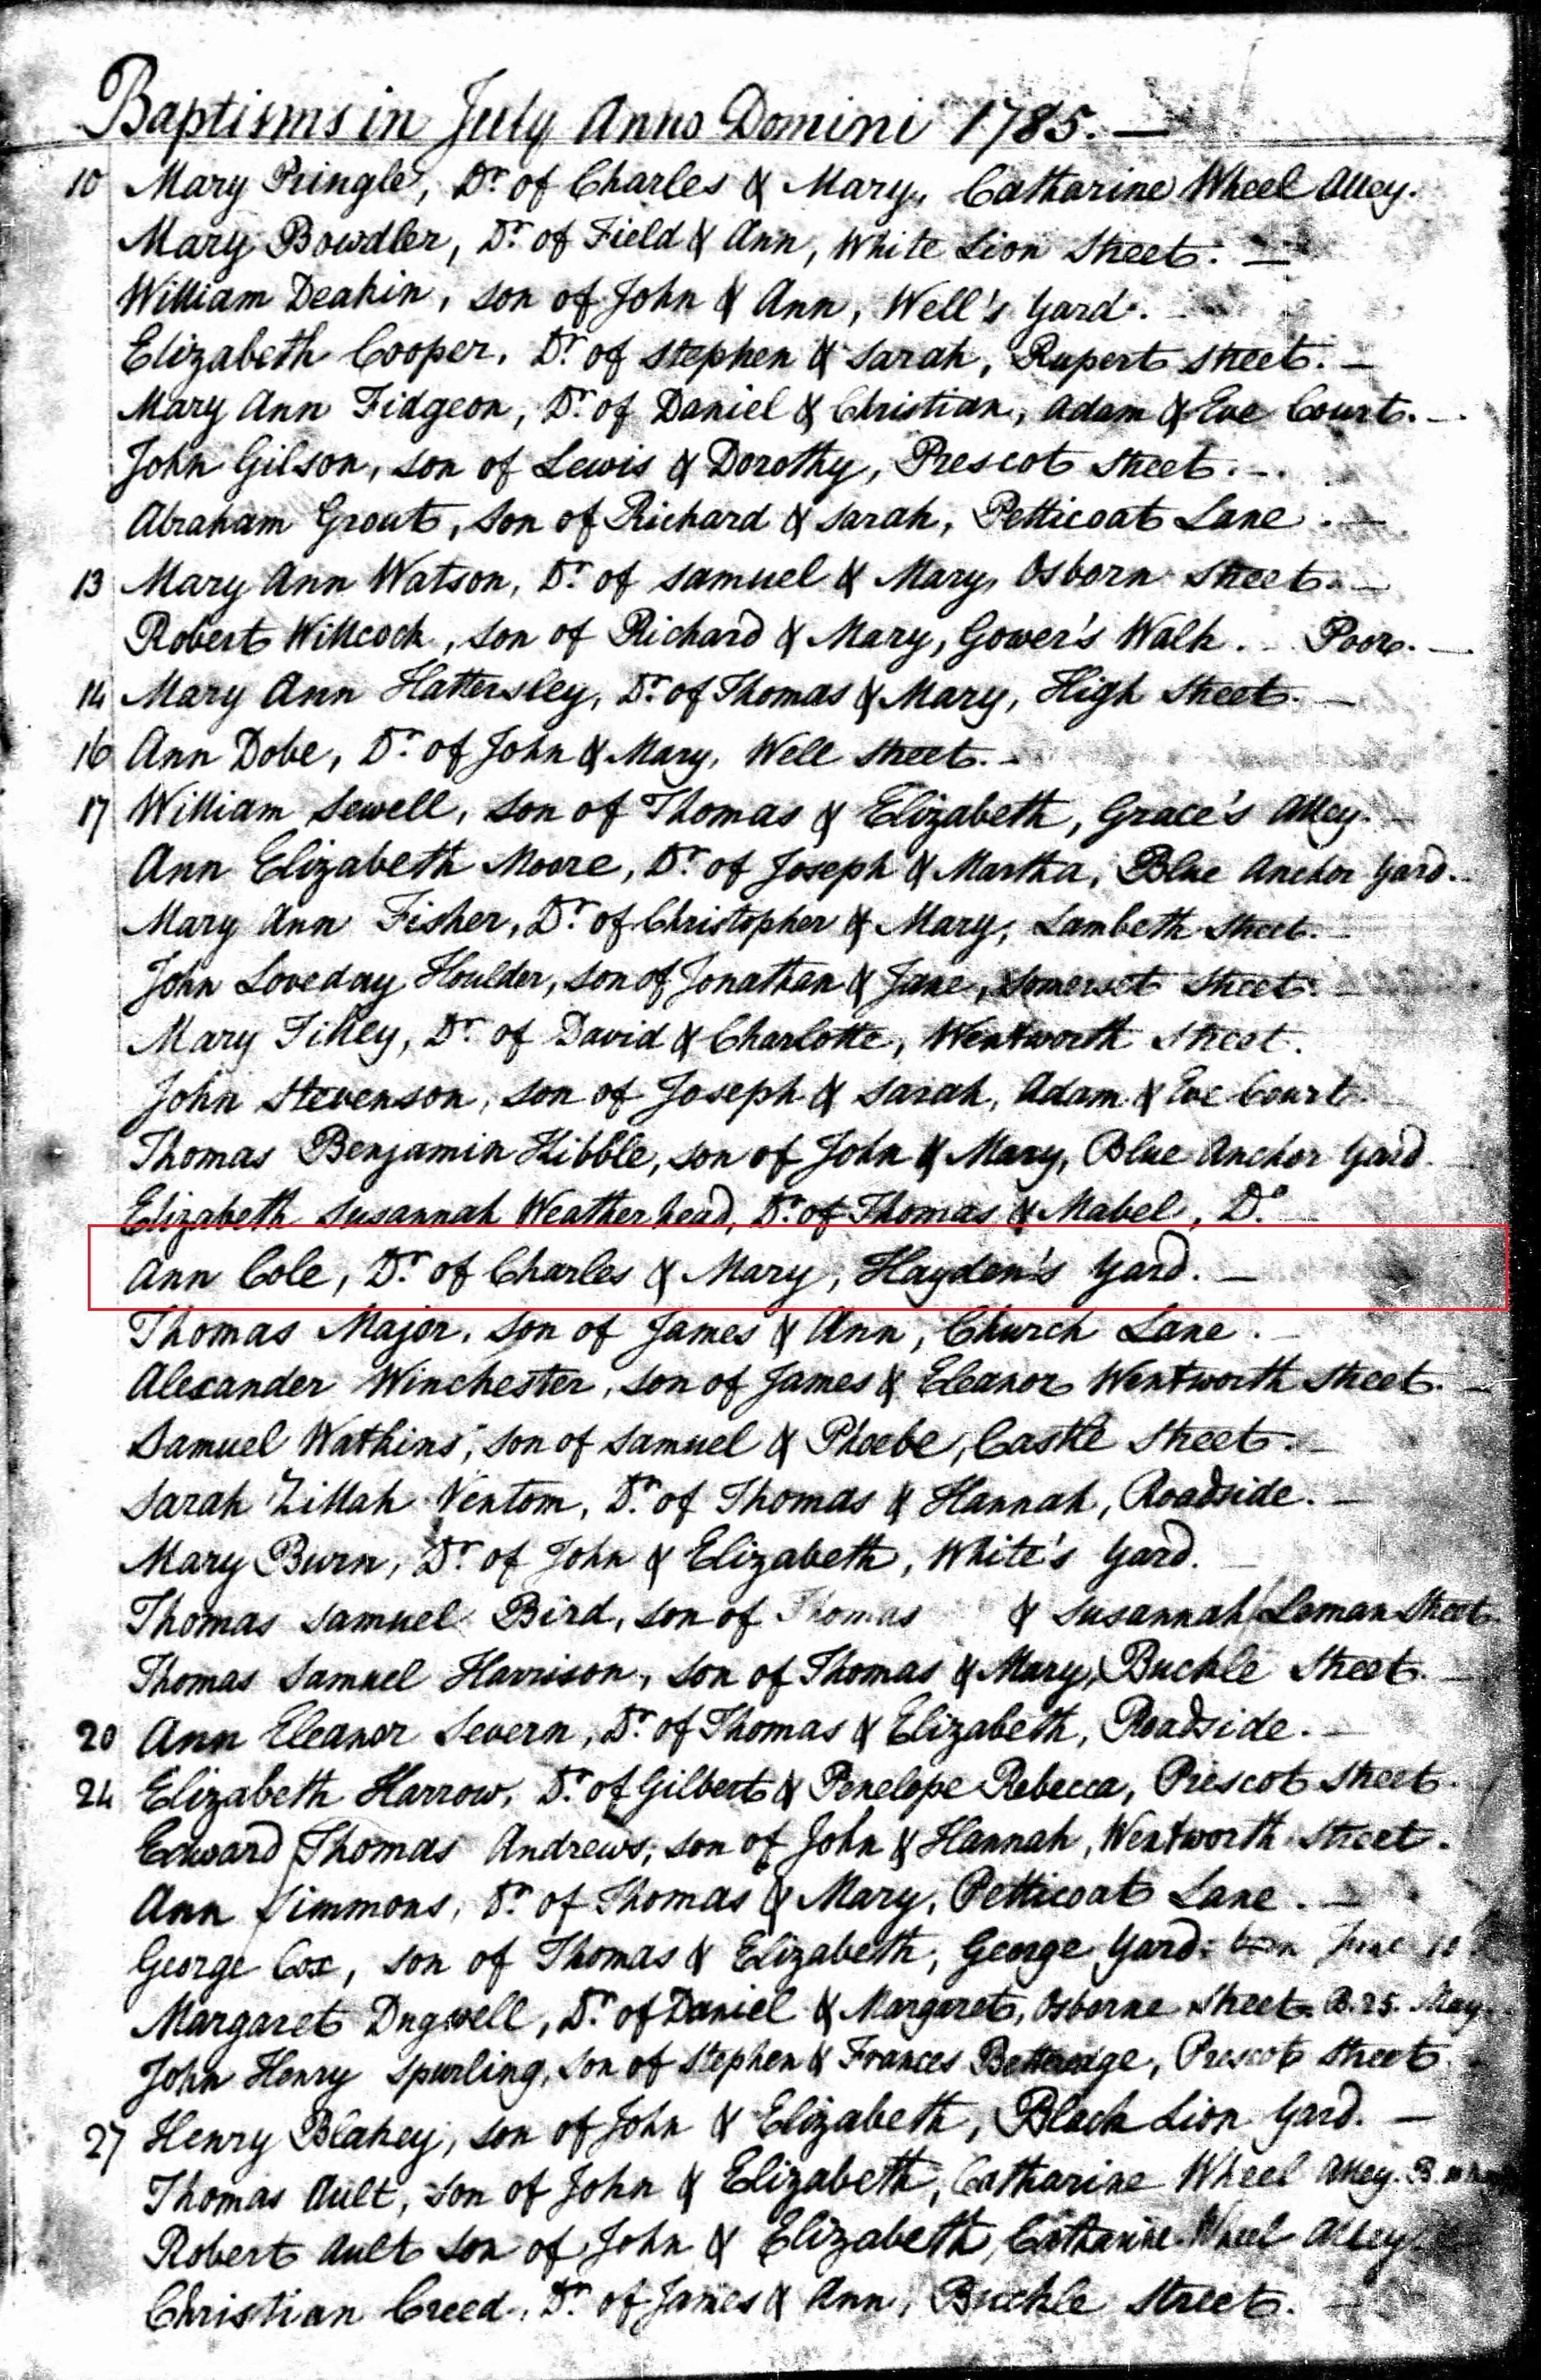 Baptisms in July Anno Domini 1785. —
10 Mary Pringle, Dr. of Charles & Mary, Catharine Wheel Alley.
Mary Bowdler, Dr. of Field & Ann, White Lion Street. —
William Deakin, son of John & Ann, Well's Yard.
Elizabeth Cooper, Dr. of Stephen & Sarah, Rupert Street. —
Mary Ann Fidgeon, Dr. of Daniel & Christian, Adam & Eve Court. —
John Gilson, son of Lewis & Dorothy, Prescot Street. —
Abraham Grout, son of Richard & Sarah, Petticoat Lane. —
13 Mary Ann Watson, Dr. of Samuel & Mary, Osborn Street. —
Robert Willcock, son of Richard & Mary, Gower's Walk. Poor. —
14 Mary Ann Hattersley, Dr. of Thomas & Mary, High Street. —
16 Ann Dobe, Dr. of John & Mary, Well Street. —
17 William Sewell, son of Thomas & Elizabeth, Grace's Alley. —
Ann Elizabeth Moore, Dr. of Joseph & Martha, Blue Anchor Yard.
Mary Ann Fisher, Dr. of Christopher & Mary, Lambeth Street. —
John Loveday Houlder, son of Jonathan & Jane, Somerset Street. —
Mary Filkey, Dr. of David & Charlotte, Wentworth Street.
John Stevenson, son of Joseph & Sarah, Adam & Eve Court. —
Thomas Benjamin Kibble, son of John & Mary, Blue Anchor Yard. —
Elizabeth Susannah Weatherhead, Dr. of Thomas & Mabel, Do. —
Ann Cole, Dr. of Charles & Mary, Hayden's Yard. —
Thomas Major, son of James & Ann, Church Lane. —
Alexander Winchester, son of James & Eleanor Wentworth Street. —
Samuel Watkins, son of Samuel & Phoebe, Castle Street. —
Sarah Zillah Ventom, Dr. of Thomas & Hannah, Roadside. —
Mary Burn, Dr. of John & Elizabeth, White's Yard. —
Thomas Samuel Bird, son of Thomas & Susannah Leman Street.
Thomas Samuel Harrison, son of Thomas & Mary, Buckle Street. —
20 Ann Eleanor Severn, Dr. of Thomas & Elizabeth, Roadside. —
24 Elizabeth Harrow, Dr. of Gilbert & Penelope Rebecca, Prescot Street.
Edward Thomas Andrews, son of John & Hannah, Wentworth Street.
Ann Simmons, Dr. of Thomas & Mary, Petticoat Lane. —
George Cox, son of Thomas & Elizabeth, George Yard. born June 10
Margaret Dugwell, Dr. of Daniel & Margaret, Osborne Street. B. 25. May
John Henry Spurling, son of Stephen & Frances Betteridge, Prescot Street.
27 Henry Blakey, son of John & Elizabeth, Black Lion Yard. —
Thomas Ault, son of John & Elizabeth, Catharine Wheel Alley. B.
Robert Ault son of John & Elizabeth, Catharine Wheel Alley.
Christian Creed, Dr. of James & Ann, Buckle Street. —